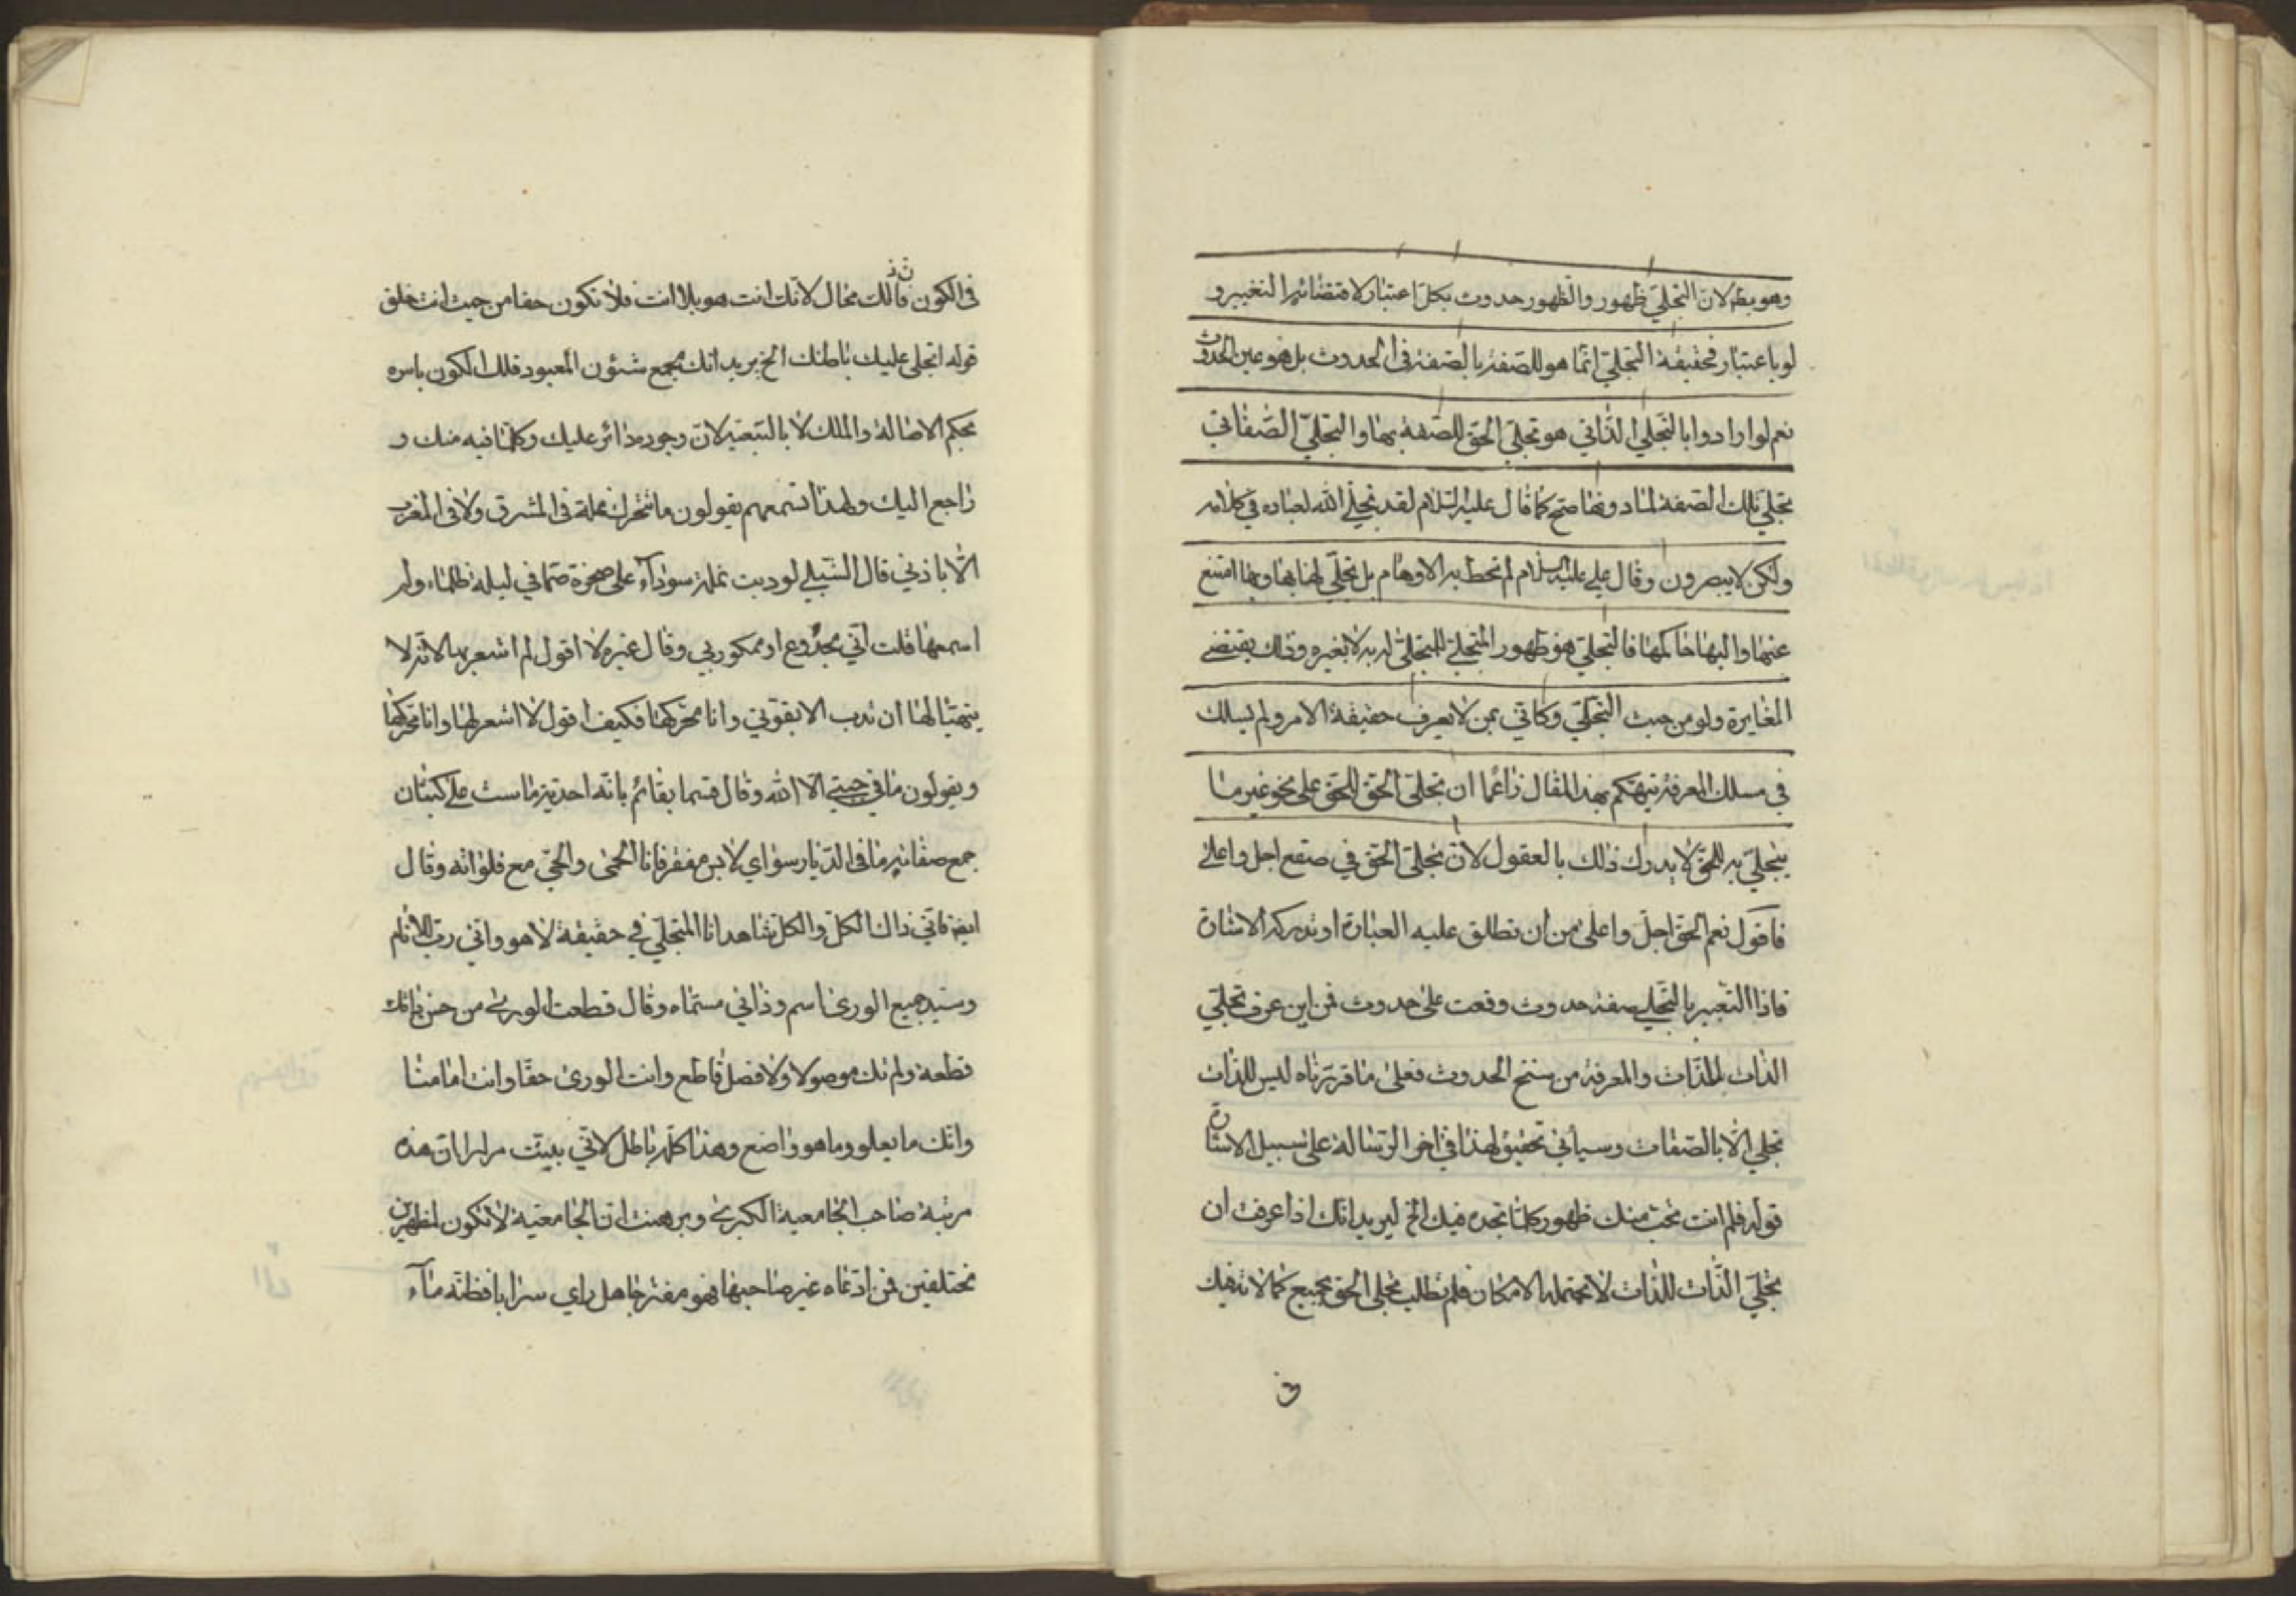 وهو بط لان التجلي ظهور والظهور حدوث بكل اعتبار لاقتضائه التغيير و
لو باعتبار فحقيقة التجلي انما هو للصفة بالصفة في الحدوث بل هو عين الحدوث
نعم لو ارادوا بالتجلي الذاتي هو تجلي الحق للصفة بها والتجلي الصفاتي
تجلي تلك الصفة لما دونها صح كما قال عليه السلام لقد تجلي الله لعباده في كلامه
ولكن لا يبصرون وقال علي عليه السلام لم تحط به الاوهام بل تجلي لها بها وبها امتنع
عنها واليها حاكمها فالتجلي هو ظهور المتجلي للمتجلي له به لا بغيره وذلك يقتضي
المغايرة ولو من حيث التجلي وكاني بمن لا يعرف حقيقة الامر ولم يسلك
في مسلك المعرفة يتهكم بهذا المقال زاعما ان تجلي الحق للحق على نحو غير ما
يتجلي به للخلق لا يدرك ذلك بالعقول لان تجلي الحق في صقع اجل واعلى
فاقول نعم الحق اجل واعلى من ان تطلق عليه العبارة او تدركه الاشارة
فاذا التعبير بالتجلي صفة حدوث وقعت على حدوث فمن اين عرف تجلي
الذات للذات والمعرفة من سنخ الحدوث فعلى ما قررناه ليس للذات
تجلي الا بالصفات وسياتي تحقيق لهذا في اخر الرسالة على سبيل الاشارة
قوله فلم انت تحت منك ظهور كلما تجده فيك الخ ليريد انك اذا عرفت ان
تجلي الذات للذات لا يحتمله الامكان فلم تطلب تجلي الحق بجميع كمالاته فيك
في الكون فان ذلك محال لانك انت هو بلا انت فلا تكون حقا من حيث انت خلق
قوله اتجلى عليك باطنك الخ يريد انك مجمع شئون المعبود فلك الكون باسره
بحكم الاصالة والملك لا بالتبعية لان وجوده دائر عليك وكلما فيه منك و
راجع اليك ولهذا تسمعهم يقولون ما تتحرك نملة في المشرق ولا في المغرب
الا باذني قال الشبلي لو دبت نملة سوداء على صخرة صما في ليلة ظلماء ولم
اسمعها قلت اني مخدوع او ممكور بي وقال غيره لا اقول لم اشعر بها لانه لا
يتهيا لها ان تدب الا بقوتي وانا محركها فكيف اقول لا اشعر لها وانا محركها
ويقولون ما في جبتي الا الله وقال قسما بقائم بانة احدية ماست على كثبان
جمع صفاته ما في الديار سواي لابس مغفر فانا الحمى والحي مع فلواته وقال
ايضا فاني ذاك الكل والكل شاهد انا المتجلي في حقيقة لا هو واني رب للانام
وسيد جميع الورى اسم وذاتي مسماه وقال قطعت الورى من حسن ذاتك
قطعة ولم تك موصولا ولا فصل قاطع وانت الورى حقا وانت امامنا
وانك ما يعلو وما هو واضع وهذا كله باطل لاني بينت مرارا ان هذه
مرتبة صاحب الجامعية الكبرى وبرهنت ان الجامعية لا تكون لمظهرين
مختلفين فمن ادعاه غير صاحبها فهو مفتر جاهل راي سرابا فظنه ماء